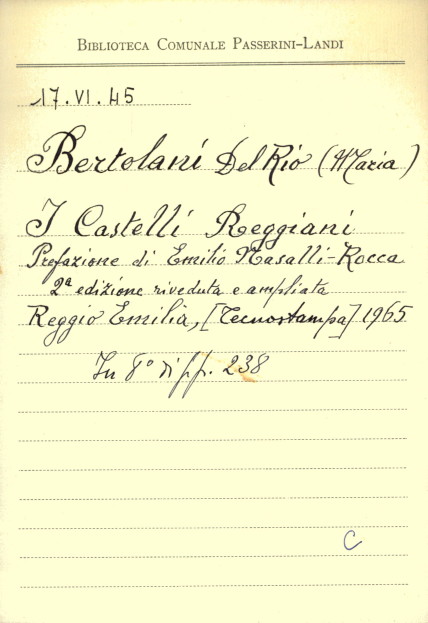 BIBLIOTECA COMUNALE PASSERINI-LANDI
17.VI.45
Bertolani Del Rio (Maria)
I Castelli Reggiani
Prefazione di Emilio Nasalli-Rocca
2ª edizione riveduta e ampliata
Reggio Emilia, [Tecnostampa] 1965
In 8° di pp. 238
C